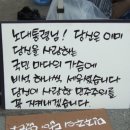 노대통령님! 당신은 이미
당신을 사랑하는
국민 마다의 가슴에
비석 하나씩 세우셨습니다
당신이 사랑한 민주주의를
꼭 지켜내겠습니다.